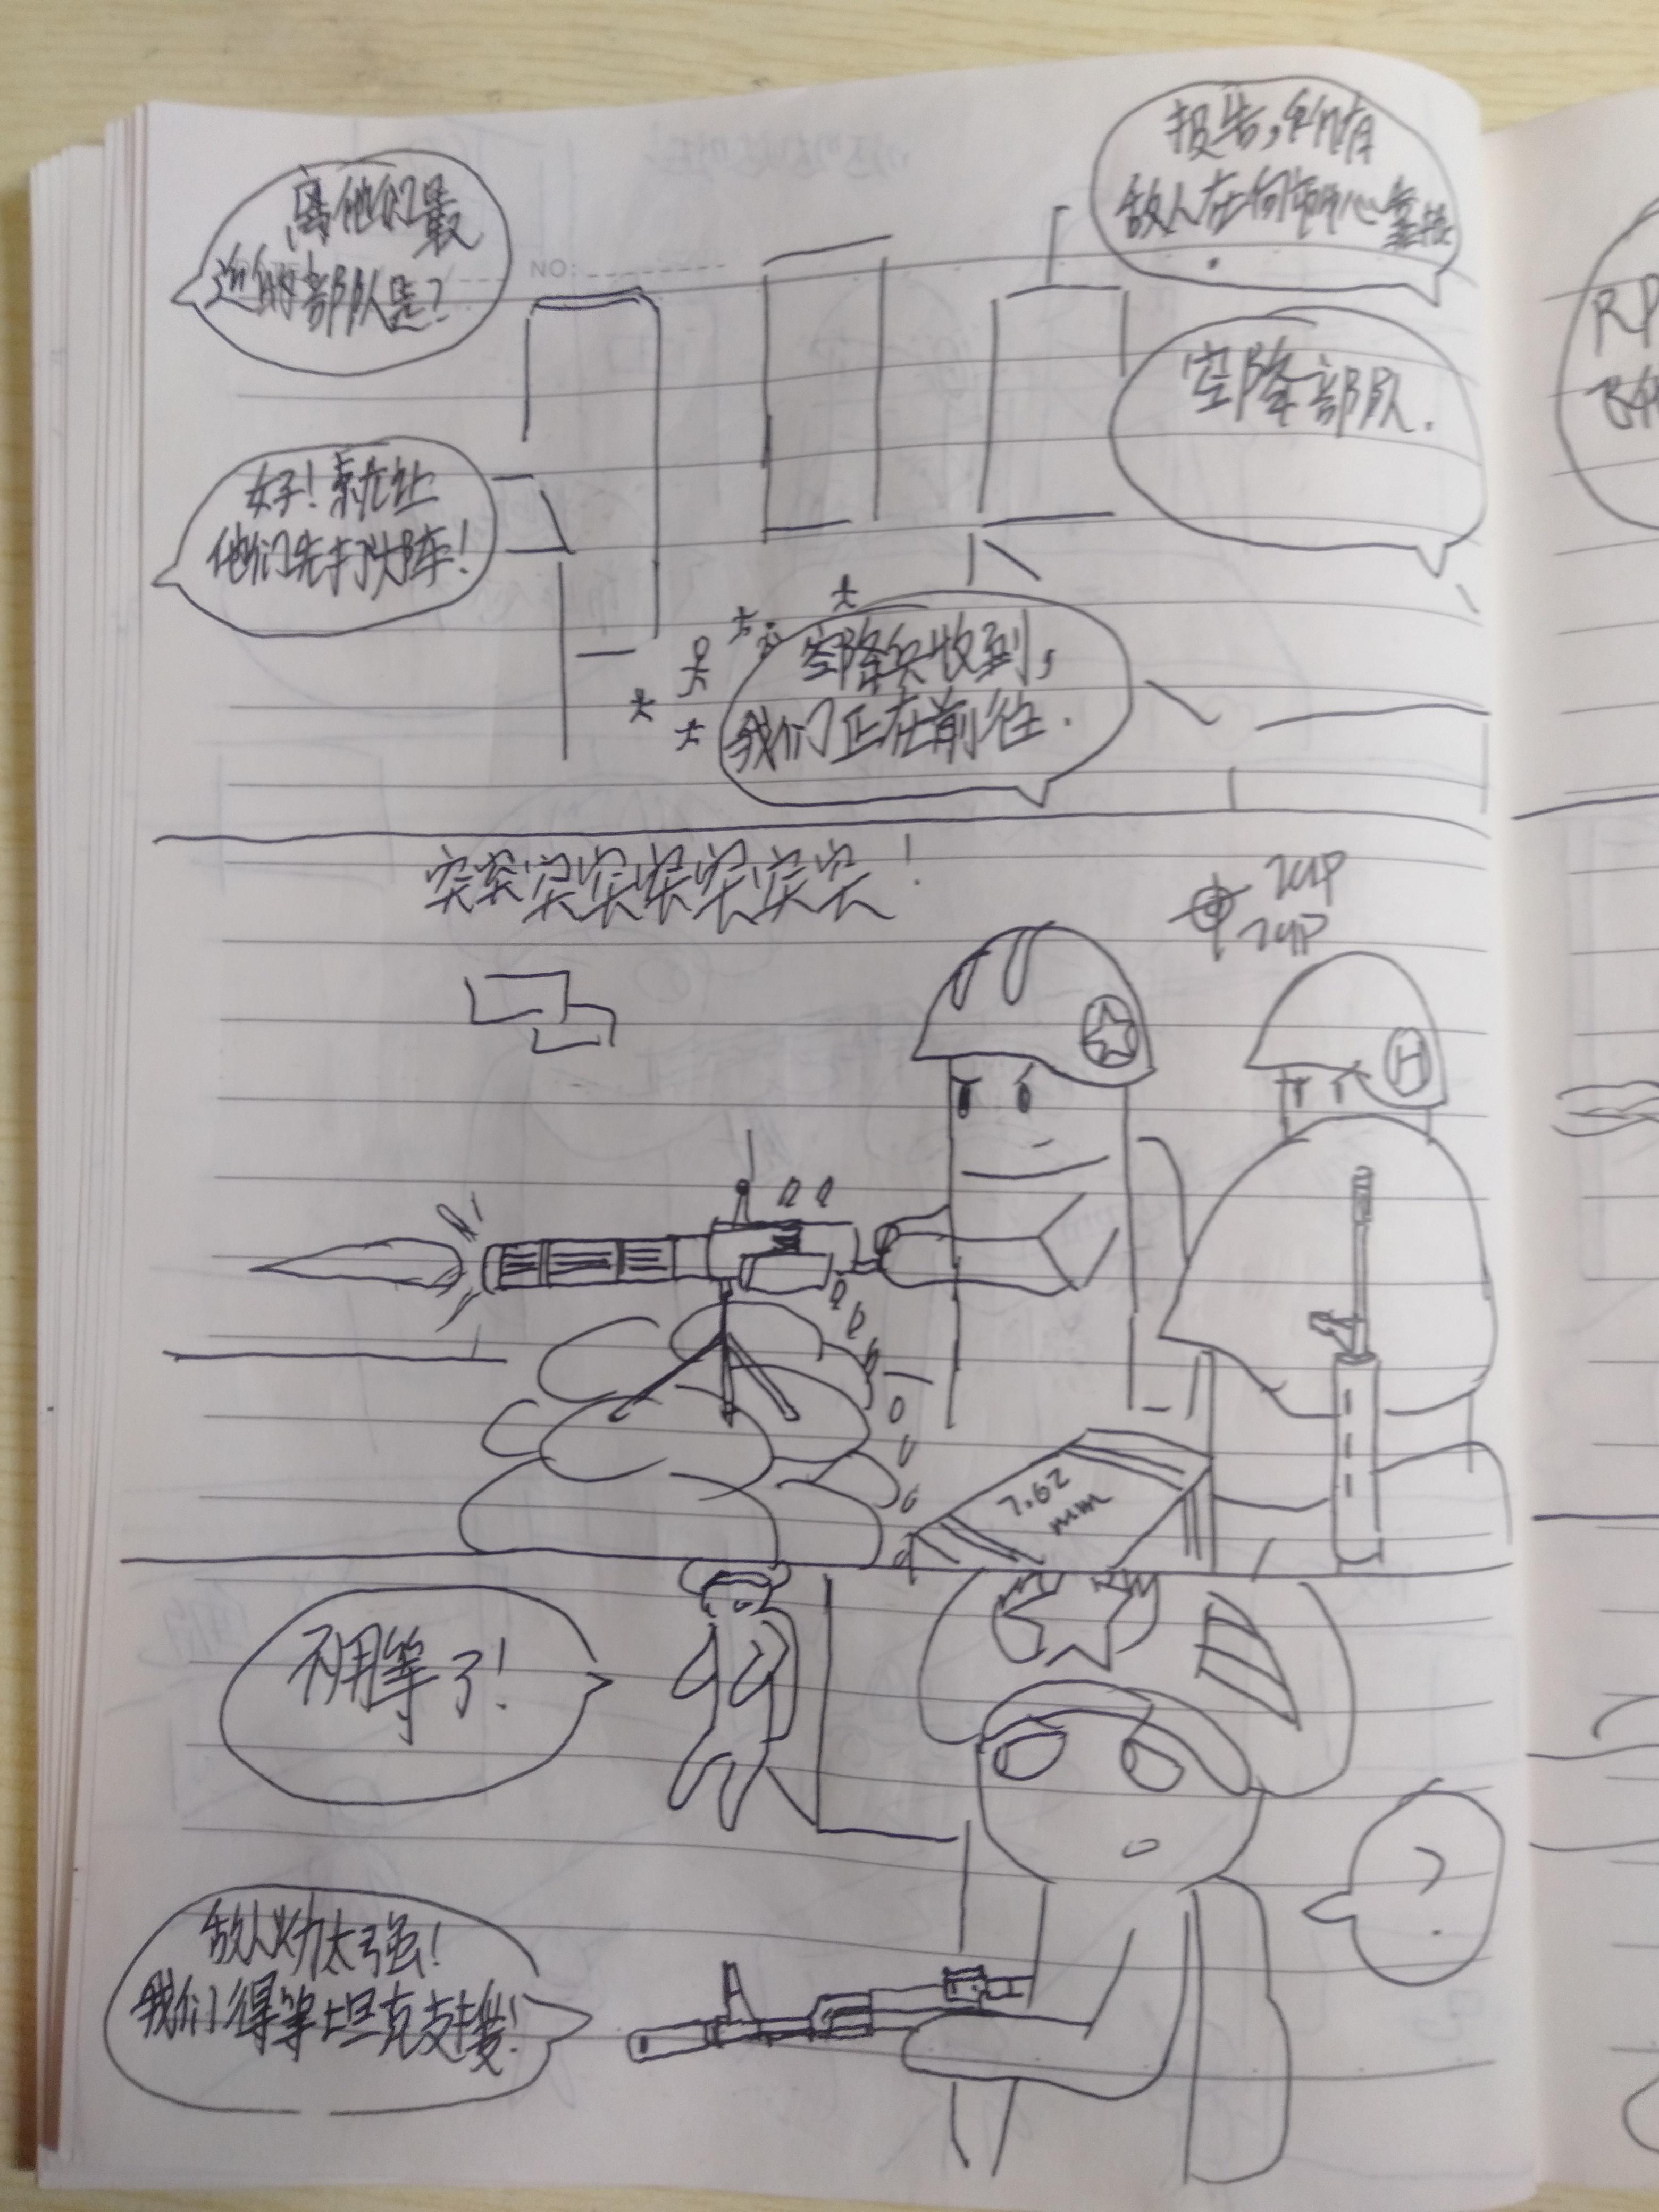 报告,
敌人在向市中心靠拢
离他们最
近的部队是?
空降部队.
好!就让
他们先打头阵!
空降兵收到,
我们正在前往.
突突突突突突突突!
ZUP
ZUP
H
7.62
mm
不用等了!
?
敌人火力太强!
我们得等坦克支援!
RP
NO: